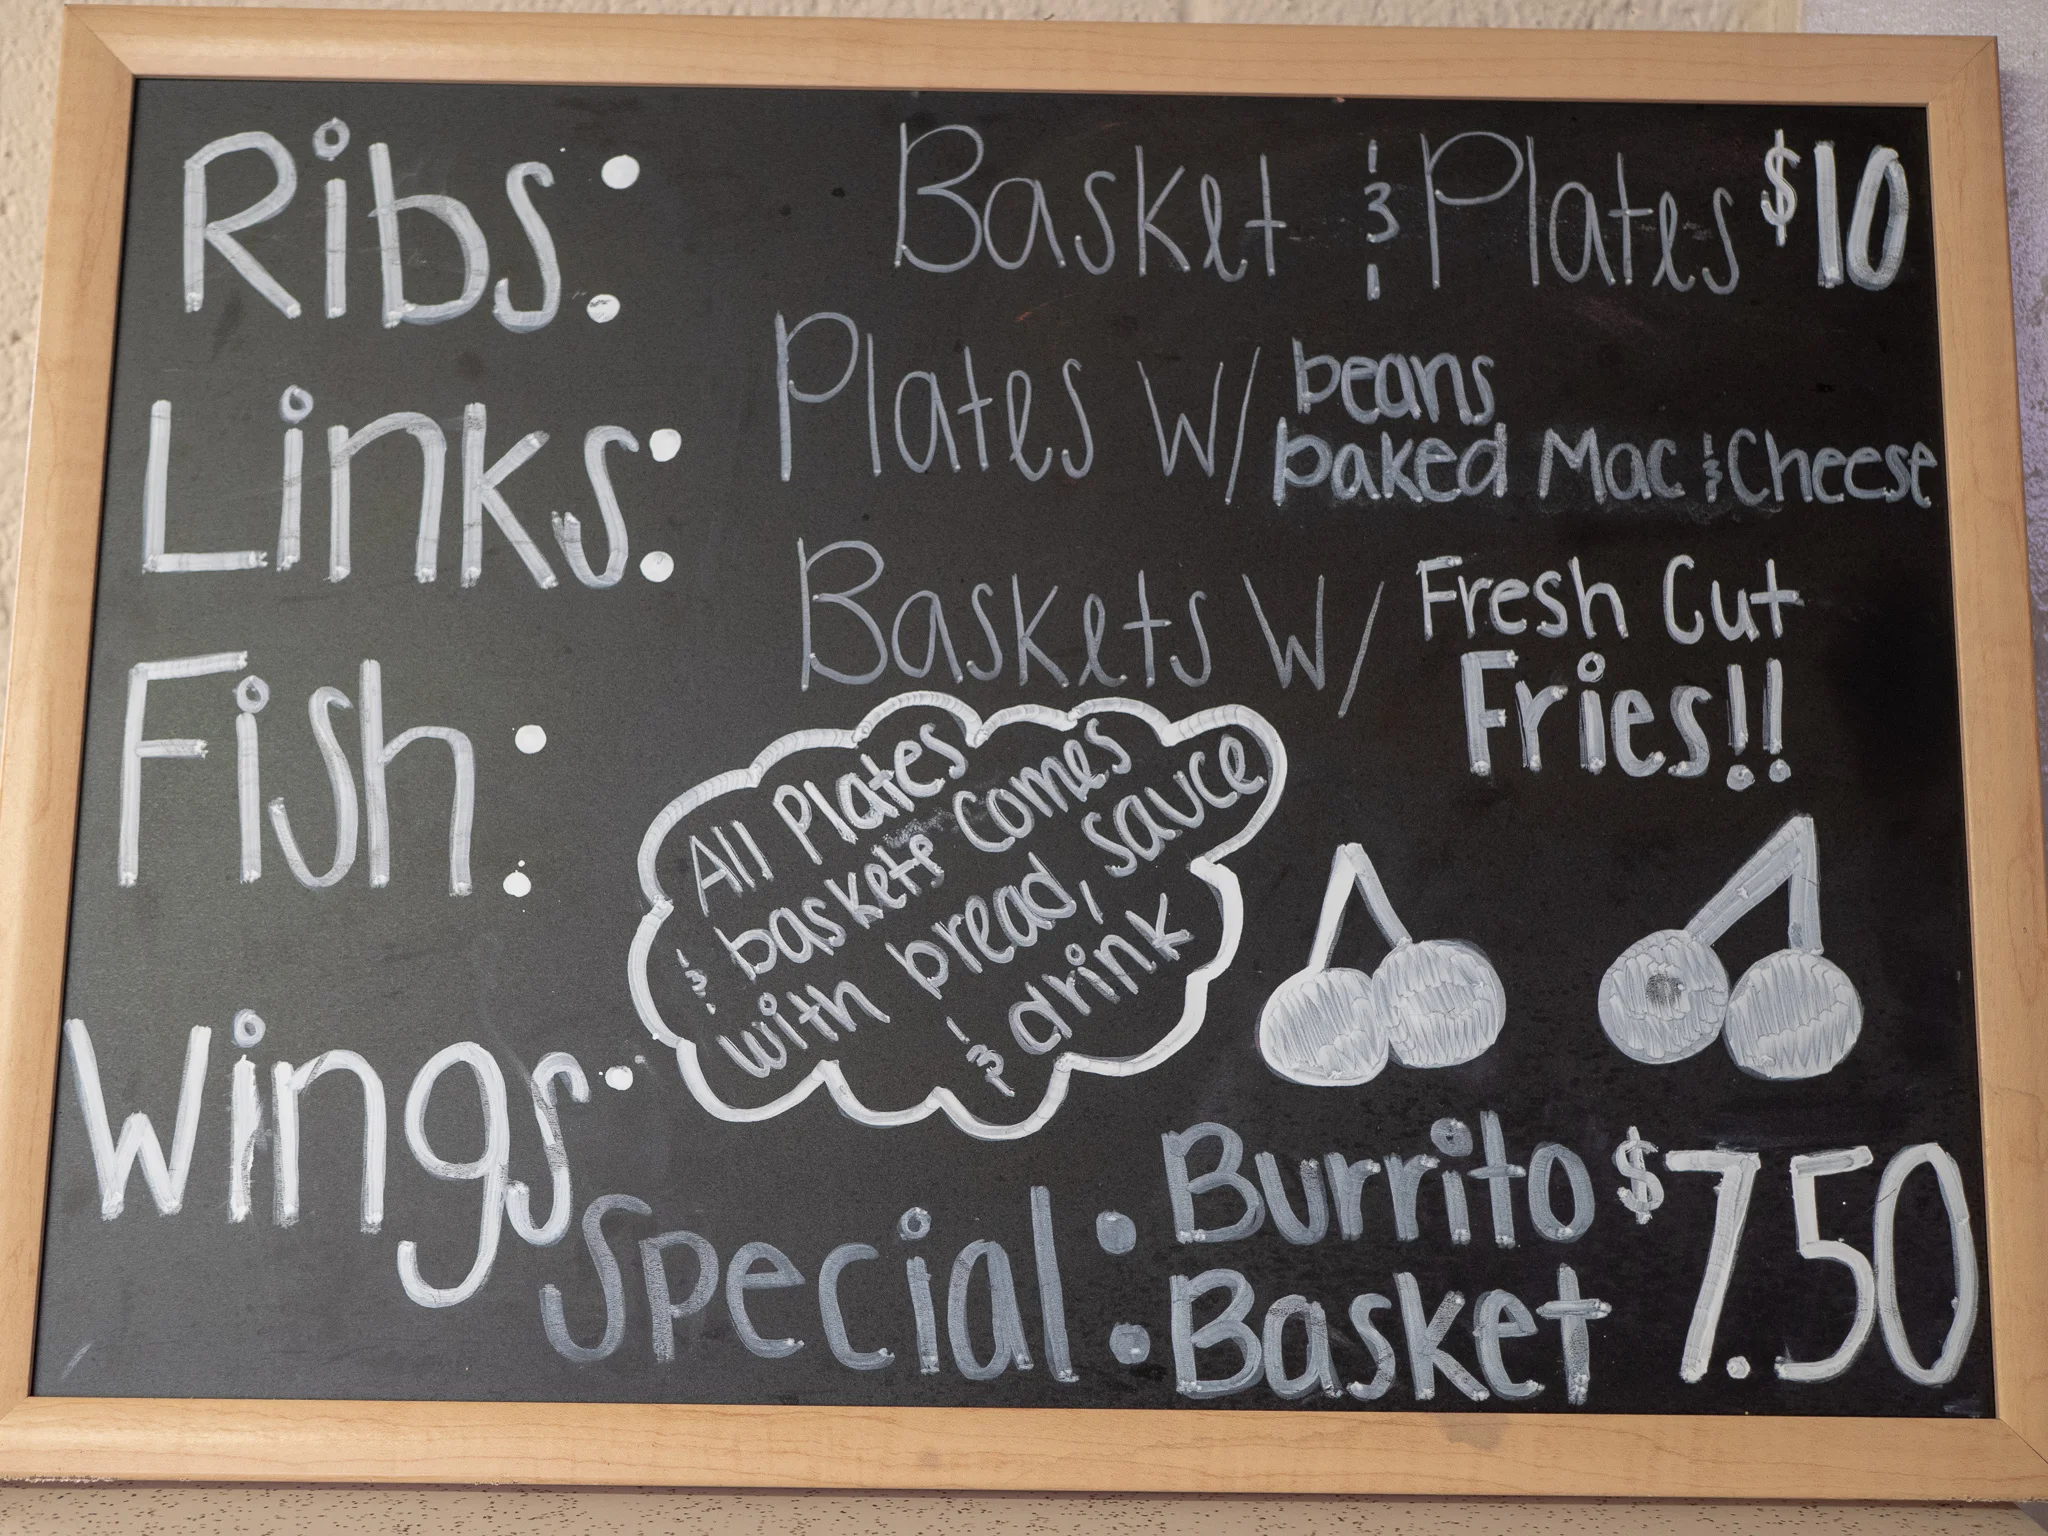 Ribs:
Basket & Plates $10
Links:
Plates w/ beans
baked Mac & Cheese
Baskets w/ Fresh Cut
Fries!!
Fish:
All Plates
& baskets comes
with bread, sauce
& drink
Wings:
Special: Burrito
Basket $7.50